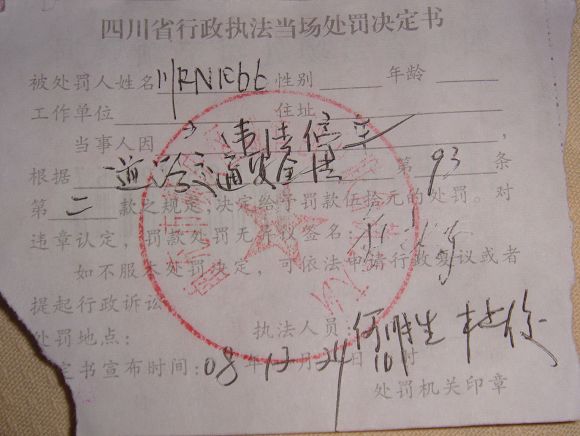 四川省行政执法当场处罚决定书
被处罚人姓名川RN1066 性别 年龄
工作单位 住址
当事人因 违法停车,
根据 道路交通安全法 第93条
第二款之规定,决定给予罚款伍拾元的处罚。对
违章认定,罚款处罚无异议签名:
如不服本处罚决定,可依法申请行政复议或者
提起行政诉讼
处罚地点: 执法人员:
定书宣布时间:08年12月24日10时
处罚机关印章